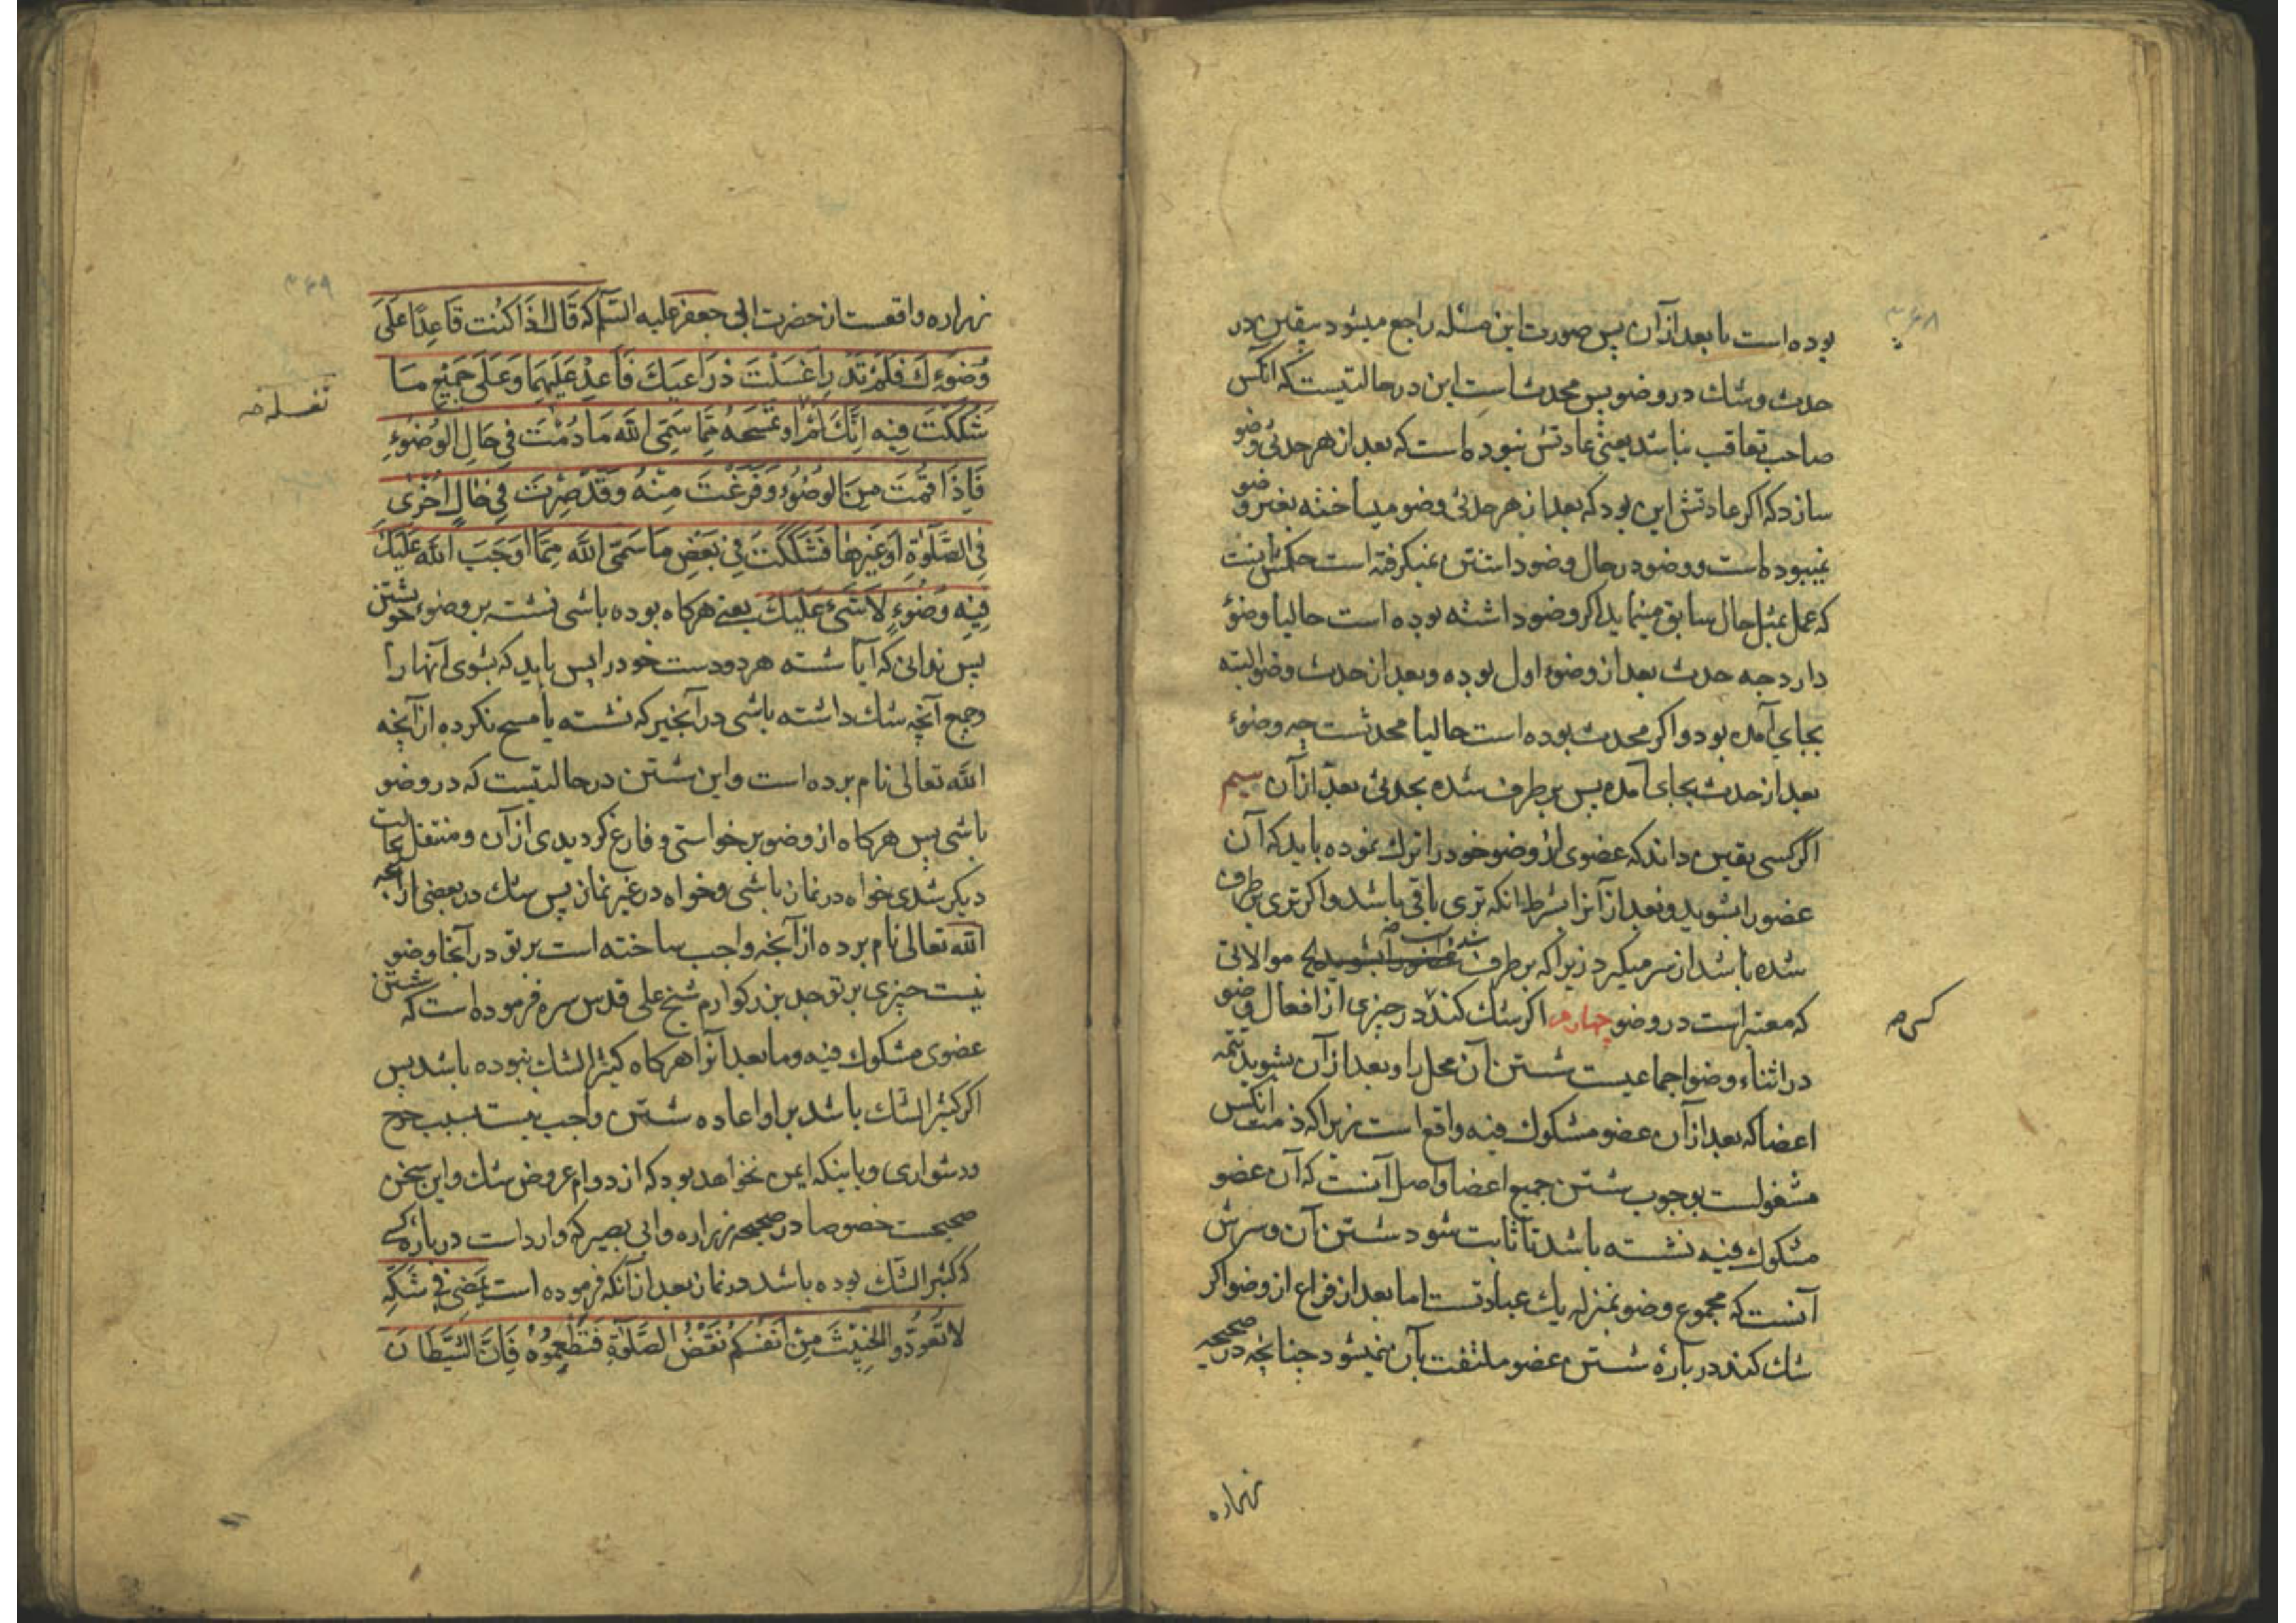 بوده است یا بعد از آن پس صورت این مسئله راجع میشود بیقین در
حدث و شک در وضو پس محدث است این در حالتیست که آنکس
صاحب تعاقب نباشد یعنی عادتش نبوده است که بعد از هر حدثی وضو
سازد که اکر عادتش این بود که بعد از هر حدثی وضو میساخته بغیر وضو
نمیبوده است و وضو در حال وضو داشتن نمیکرفته است حکمش اینست
که عمل بمثل حال سابق مینماید اکر وضو داشته بوده است حالیا وضوء
دارد چه حدث بعد از وضوء اول بوده و بعد از حدث وضو البته
بجای آمده بود و اکر محدث بوده است حالیا محدثست چه وضوء
بعد از حدث بجای آمده پس بر طرف شده بحدثی بعد از آن سیم
اگر کسی یقین داند که عضوی از وضو خود را ترک نموده باید که آن
عضو را بشوید و بعد از آنرا بشرط انکه تری باقی باشد و اکر تری بر طرف
شده باشد از سر میکیرد زیرا که بر طرف شد موالاتی
که معتبر است در وضو چهارم اکر شک کند در چیزی از افعال وضو
در اثناء وضو اجماعیست شستن آن محل را و بعد از آن بشوید تتمه
اعضا که بعد از آن عضو مشکوک فیه واقع است زیرا که ذمت آنکس
مشغولست بوجوب شستن جمیع اعضا و اصل آنست که آن عضو
مشکوک فیه نشسته باشد تا ثابت شود شستن آن و سرش
آنست که مجموع وضو بمنزله یک عبادتست اما بعد از فراغ از وضو اکر
شک کند در بارهٔ شستن عضو ملتفت بآن نمیشود چنانچه در صحیحه
زراره
زراره واقعست از حضرت ابی جعفر علیه السلم که قَالَ اِذَا کُنْتَ قَاعِدًا عَلَی
وُضُوءِکَ فَلَمْ تَدْرِ اَغَسَلْتَ ذِرَاعَیْکَ فَاَعِدْ عَلَیْهِمَا وَ عَلَی جَمِیْعِ مَا
شَکَکْتَ فِیْهِ اِنَّکَ لَمْ اَوْ تَمْسَحْهُ مِمَّا سَمَّی اللّٰهُ مَا دُمْتَ فِی حَالِ الْوُضُوءِ
تغسله صح
فَاِذَا قُمْتَ مِنَ الْوُضُوءِ وَ فَرَغْتَ مِنْهُ وَ قَدْ صِرْتَ فِی حَالٍ اُخْرٰی
فِی الصَّلٰوةِ اَوْ غَیْرِهَا فَشَکَکْتَ فِی بَعْضِ مَا سَمَّی اللّٰهُ مِمَّا اَوْجَبَ اللّٰهُ عَلَیْکَ
فِیْهِ وُضُوءٍ لَا شَیْءَ عَلَیْکَ یعنی هرکاه بوده باشی نشسته بر وضوء خویشتن
پس ندانی که آیا شسته هر دو دست خود را پس باید که بشوی آنها را
و جمیع آنچه شک داشته باشی در آنچیز که نشسته یا مسح نکرده از آنچه
الله تعالی نام برده است و این شستن در حالتیست که در وضو
باشی پس هرکاه از وضو برخواستی و فارغ کردیدی از آن و منتقل بحالت
دیکر شدی خواه در نماز باشی و خواه در غیر نماز پس شک در بعضی از آنچه
الله تعالی نام برده از آنچه واجب ساخته است بر تو در آنجا وضو
نیست چیزی بر تو جد بزرکوارم شیخ علی قدس سره فرموده است که شستن
عضوی مشکوک فیه و ما بعد آنرا هرکاه کثیر الشک نبوده باشد پس
اکر کثیر الشک باشد بر او اعاده شستن واجب نیست بسبب حرج
و دشواری و باینکه ایمن نخواهد بود که از دوام عروض شک و این سخن
صحیحست خصوصا در صحیحه زراره و ابی بصیر که وارد است در باره کسی
که کثیر الشک بوده باشد در نماز بعد از آنکه فرموده است یَمْضِی فِی شَکِّهِ
لَا تُعَوِّدُوا الْخَبِیْثَ مِنْ اَنْفُسِکُمْ نَقْضَ الصَّلٰوةِ فَتُطْمِعُوْهُ فَاِنَّ الشَّیْطَانَ